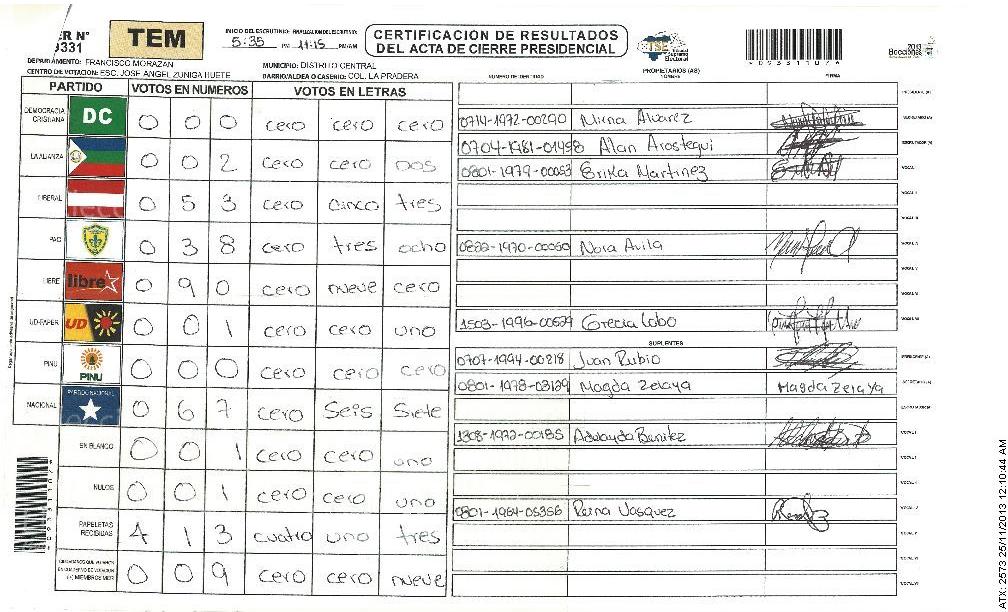 ER N°
9331
TEM
INICIO DEL ESCRUTINIO: FINALIZACION DEL ESCRUTINIO:
5:35 PM 11:15 PM/AM
CERTIFICACION DE RESULTADOS
DEL ACTA DE CIERRE PRESIDENCIAL
TSE Tribunal Supremo Electoral
2013
Elecciones
DEPARTAMENTO: FRANCISCO MORAZAN
MUNICIPIO: DISTRITO CENTRAL
CENTRO DE VOTACION: ESC. JOSE ANGEL ZUNIGA HUETE
BARRIO/ALDEA O CASERIO: COL. LA PRADERA
NUMERO DE IDENTIDAD
PROPIETARIOS (AS)
NOMBRE
FIRMA
PARTIDO VOTOS EN NUMEROS VOTOS EN LETRAS
DEMOCRACIA CRISTIANA DC 0 0 0 cero cero cero
LA ALIANZA 0 0 2 cero cero dos
LIBERAL 0 5 3 cero cinco tres
PAC 0 3 8 cero tres ocho
LIBRE libre 0 9 0 cero nueve cero
UD-FAPER UD 0 0 1 cero cero uno
PINU PINU 0 0 0 cero cero cero
NACIONAL PARTIDO NACIONAL 0 6 7 cero Seis Siete
EN BLANCO 0 0 1 cero cero uno
NULOS 0 0 1 cero cero uno
PAPELETAS RECIBIDAS 4 1 3 cuatro uno tres
CIUDADANOS QUE VOTARON EN CUADERNO DE VOTACION (+) MIEMBROS MER 0 0 9 cero cero nueve
0714-1972-00290 Mirna Alvarez
0704-1981-01498 Alan Arostegui
0801-1979-00053 Erika Martinez
0822-1970-00060 Nora Avila
1503-1996-00529 Grecia Lobo
SUPLENTES
0707-1994-00218 Juan Rubio
0801-1978-03129 Magda Zelaya Magda Zelaya
1308-1972-00185 Adwayda Benitez
0801-1984-05356 Reina Vasquez
ATX: 2573 25/11/2013 12:10:44 AM